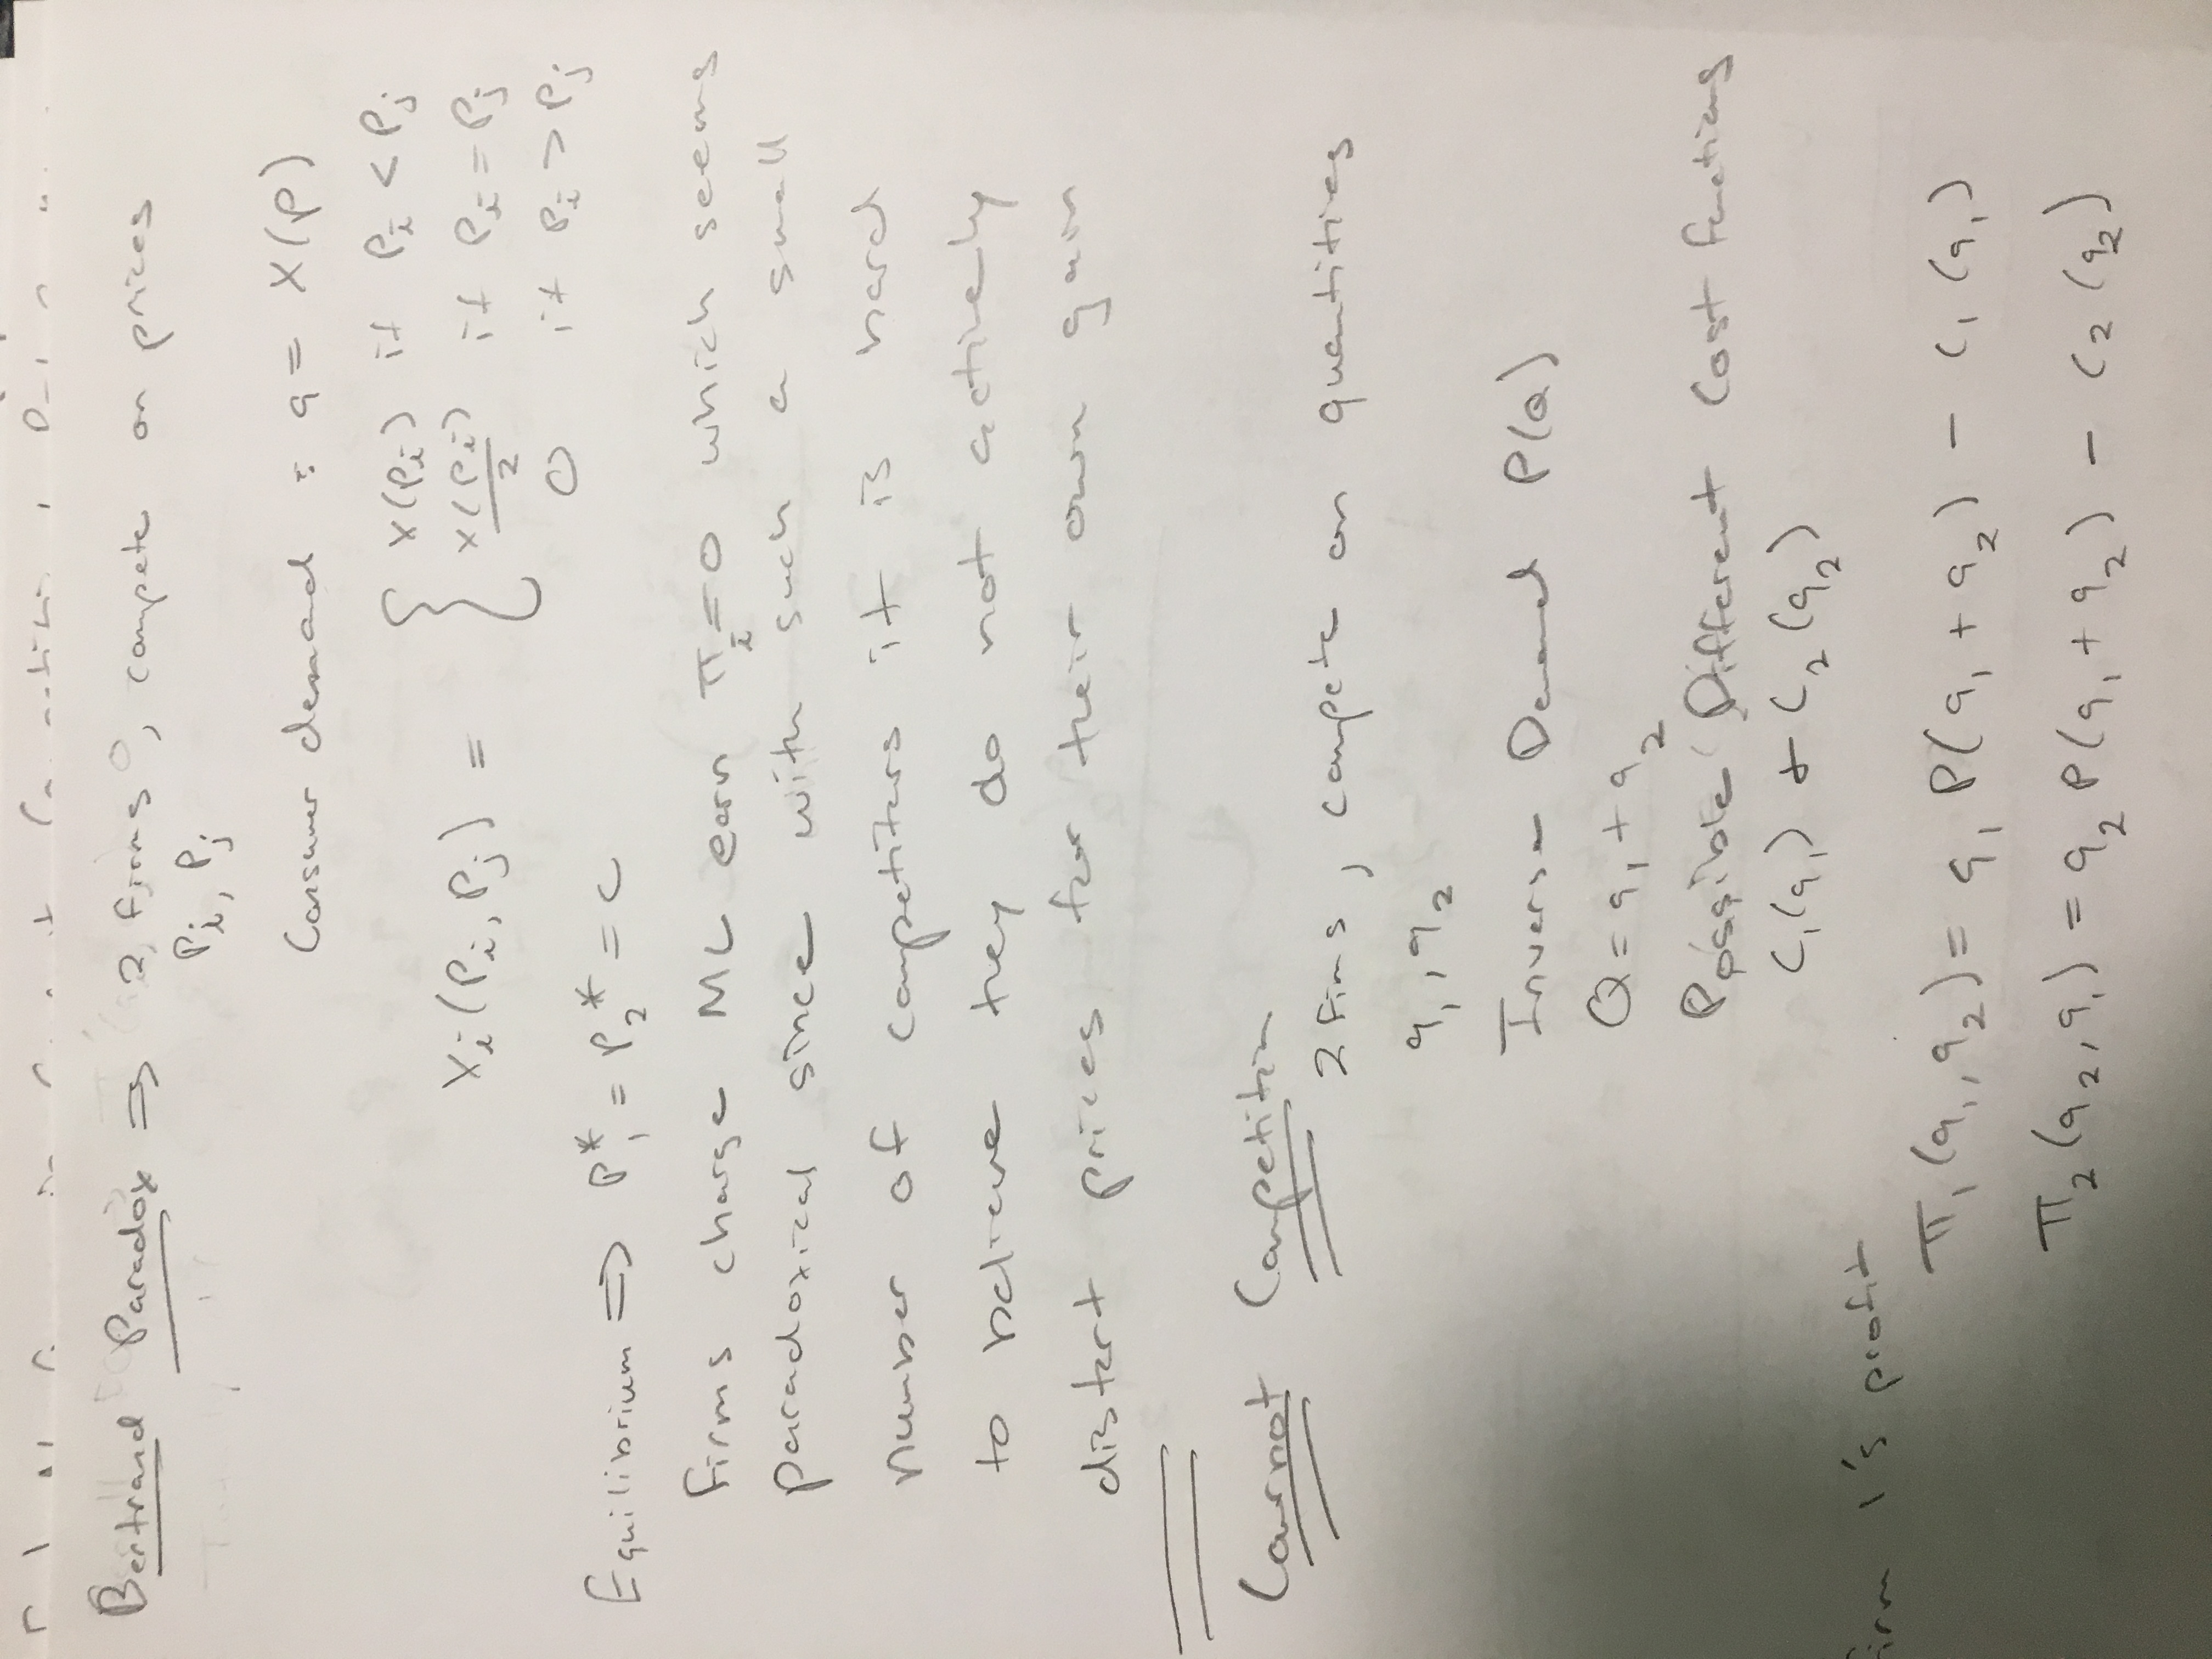 Bertrand Paradox ⇒ 2 firms, compete on prices
Pi, Pj
Consumer demand : q = X(p)
Xi(Pi, Pj) = { X(Pi) if Pi < Pj
X(Pi)/2 if Pi = Pj
0 if Pi > Pj
Equilibrium ⇒ P1* = P2* = c
firms charge MC earn πi = 0 which seems
paradoxical since with such a small
number of competitors it is hard
to believe they do not actively
distort prices for their own gain
Cournot Competition
2 Firms, compete on quantities
q1, q2
Inverse Demand P(Q)
Q = q1 + q2
Possible Different Cost functions
C1(q1) & C2(q2)
firm 1's profit
π1(q1, q2) = q1 P(q1 + q2) - C1(q1)
π2(q2, q1) = q2 P(q1 + q2) - C2(q2)